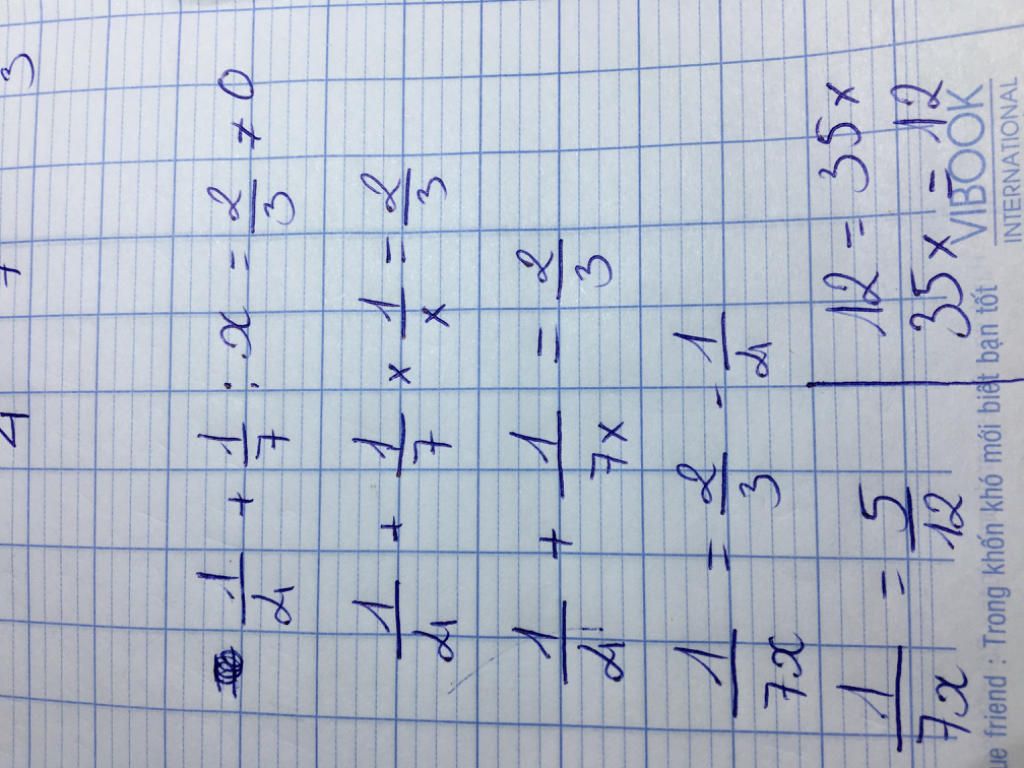 4 7 3
1/4 + 1/7 : x = 2/3 + 0
1/4 + 1/7 x 1/x = 2/3
1/4 + 1/7x = 2/3
1/7x = 2/3 - 1/4
1/7x = 5/12
12 = 35x
35x = 12
ue friend : Trong khốn khó mới biết bạn tốt
VIBOOK
INTERNATIONAL